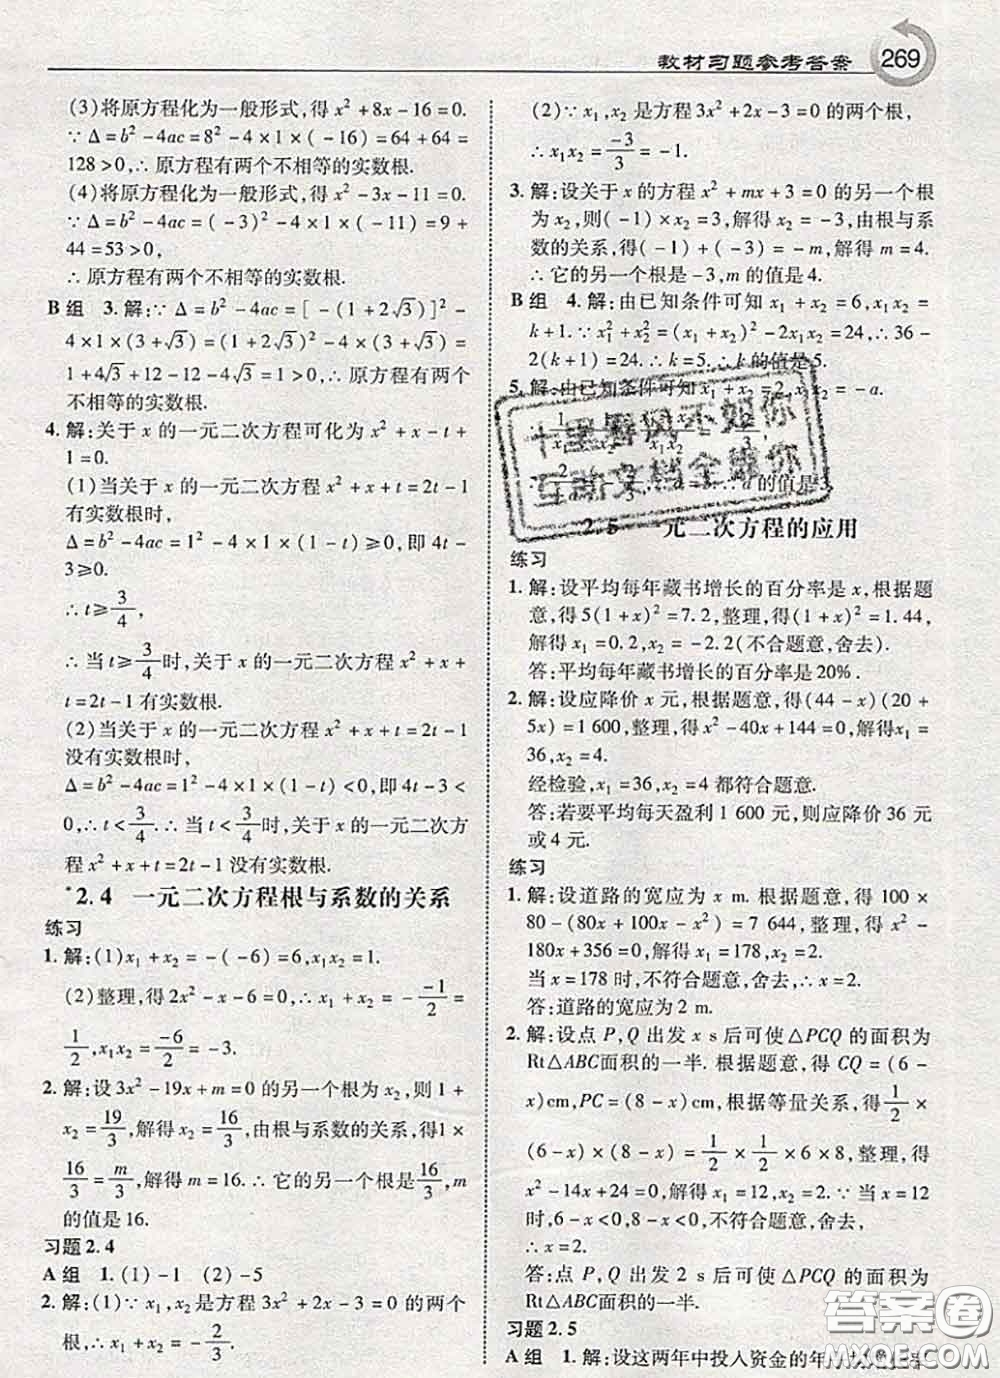 教材习题参考答案 269
(3)将原方程化为一般形式,得 x²+8x-16=0.
∵Δ=b²-4ac=8²-4×1×(-16)=64+64=
128>0,∴原方程有两个不相等的实数根.
(4)将原方程化为一般形式,得 x²-3x-11=0.
∵Δ=b²-4ac=(-3)²-4×1×(-11)=9+
44=53>0,
∴原方程有两个不相等的实数根.
B 组 3.解:∵Δ=b²-4ac=[-(1+2√3)]²-
4×1×(3+√3)=(1+2√3)²-4×(3+√3)=
1+4√3+12-12-4√3=1>0,∴原方程有两个
不相等的实数根.
4.解:关于 x 的一元二次方程可化为 x²+x-t+
1=0.
(1)当关于 x 的一元二次方程 x²+x+t=2t-1
有实数根时,
Δ=b²-4ac=1²-4×1×(1-t)≥0,即 4t-3≥
0,
∴t≥3/4,
∴当 t≥3/4时,关于 x 的一元二次方程 x²+x+
t=2t-1 有实数根.
(2)当关于 x 的一元二次方程 x²+x+t=2t-1
没有实数根时,
Δ=b²-4ac=1²-4×1×(1-t)<0,即 4t-3<
0,∴t<3/4.∴当 t<3/4时,关于 x 的一元二次方
程 x²+x+t=2t-1 没有实数根.
*2.4 一元二次方程根与系数的关系
练习
1.解:(1)x₁+x₂=-(-6)=6,x₁x₂=1.
(2)整理,得 2x²-x-6=0,∴x₁+x₂=-(-1)/2=
1/2,x₁x₂=-6/2=-3.
2.解:设 3x²-19x+m=0 的另一个根为 x₂,则 1+
x₂=19/3,解得 x₂=16/3,由根与系数的关系,得1×
16/3=m/3,解得 m=16.∴它的另一个根是16/3,m
的值是 16.
习题 2.4
A 组 1.(1)-1 (2)-5
2.解:(1)∵x₁,x₂是方程 3x²+2x-3=0 的两个
根,∴x₁+x₂=-2/3.
(2)∵x₁,x₂是方程 3x²+2x-3=0 的两个根,
∴x₁x₂=-3/3=-1.
3.解:设关于 x 的方程 x²+mx+3=0 的另一个根
为 x₂,则(-1)×x₂=3,解得 x₂=-3,由根与系
数的关系,得(-1)+(-3)=-m,解得 m=4.
∴它的另一个根是-3,m 的值是 4.
B 组 4.解:由已知条件可知 x₁+x₂=6,x₁x₂=
k+1.∵x₁²+x₂²=(x₁+x₂)²-2x₁x₂=24,∴36-
2(k+1)=24.∴k=5.∴k 的值是 5.
5.解:由已知条件可知 x₁+x₂=2,x₁x₂=-a.
的值是3.
十里春风不如你
互动文档全靠你
2.5 一元二次方程的应用
练习
1.解:设平均每年藏书增长的百分率是 x,根据题
意,得 5(1+x)²=7.2,整理,得(1+x)²=1.44,
解得 x₁=0.2,x₂=-2.2(不合题意,舍去).
答:平均每年藏书增长的百分率是 20%.
2.解:设应降价 x 元,根据题意,得(44-x)(20+
5x)=1 600,整理,得 x²-40x+144=0,解得 x₁=
36,x₂=4.
经检验,x₁=36,x₂=4 都符合题意.
答:若要平均每天盈利 1 600 元,则应降价 36 元
或 4 元.
练习
1.解:设道路的宽应为 x m.根据题意,得 100×
80-(80x+100x-x²)=7 644,整理,得 x²-
180x+356=0,解得 x₁=178,x₂=2.
当 x=178 时,不符合题意,舍去,∴x=2.
答:道路的宽应为 2 m.
2.解:设点 P,Q 出发 x s 后可使△PCQ 的面积为
Rt△ABC面积的一半.根据题意,得 CQ=(6-
x)cm,PC=(8-x)cm,根据等量关系,得1/2×
(6-x)×(8-x)=1/2×1/2×6×8,整理,得
x²-14x+24=0,解得 x₁=12,x₂=2.∵当 x=12
时,6-x<0,8-x<0,不符合题意,舍去,
∴x=2.
答:点 P,Q 出发 2 s 后可使△PCQ 的面积为
Rt△ABC面积的一半.
习题 2.5
A 组 1.解:设这两年中投入资金的年
答案圈
MXQE.COM